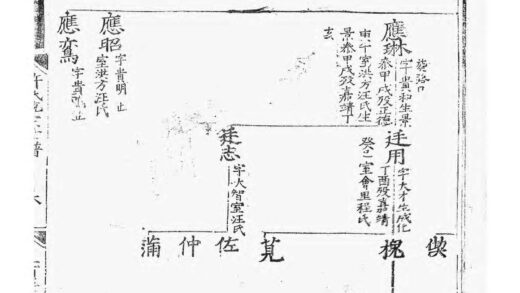 應琳
字貴和生景
泰甲戌歿正德
庚午室洪方汪氏生
景泰甲戌歿嘉靖丁
亥
應昭
字貴明 止
室洪方汪氏
應
字貴 止
廷用
字大才生成化
丁酉歿嘉靖
癸巳室會里程氏
廷志
字大智室汪氏
槐
佐
仲
蒲